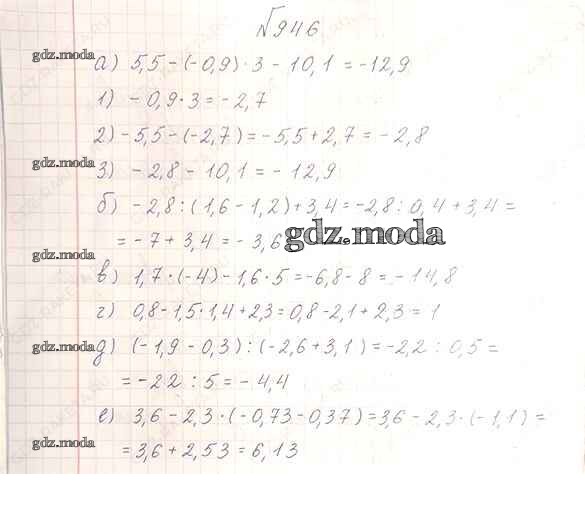 №946
а) 5,5 - (-0,9) · 3 - 10,1 = -12,9
1) -0,9 · 3 = -2,7
2) -5,5 - (-2,7) = -5,5 + 2,7 = -2,8
3) -2,8 - 10,1 = -12,9
б) -2,8 : (1,6 - 1,2) + 3,4 = -2,8 : 0,4 + 3,4 =
= -7 + 3,4 = -3,6
в) 1,7 · (-4) - 1,6 · 5 = -6,8 - 8 = -14,8
г) 0,8 - 1,5 · 1,4 + 2,3 = 0,8 - 2,1 + 2,3 = 1
д) (-1,9 - 0,3) : (-2,6 + 3,1) = -2,2 : 0,5 =
= -22 : 5 = -4,4
е) 3,6 - 2,3 · (-0,73 - 0,37) = 3,6 - 2,3 · (-1,1) =
= 3,6 + 2,53 = 6,13
gdz.moda
gdz.moda
gdz.moda
gdz.moda
gdz.moda
gdz.moda